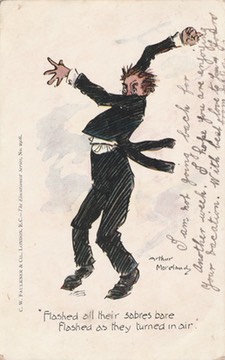 I am not going back for
another week. I hope you are enjoying
your vacation. With best love to
C. W. FAULKNER & CO., LONDON, E.C.—The Elocutionist Series, No. 
Arthur
Moreland
"Flashed all their sabres bare
Flashed as they turned in air"